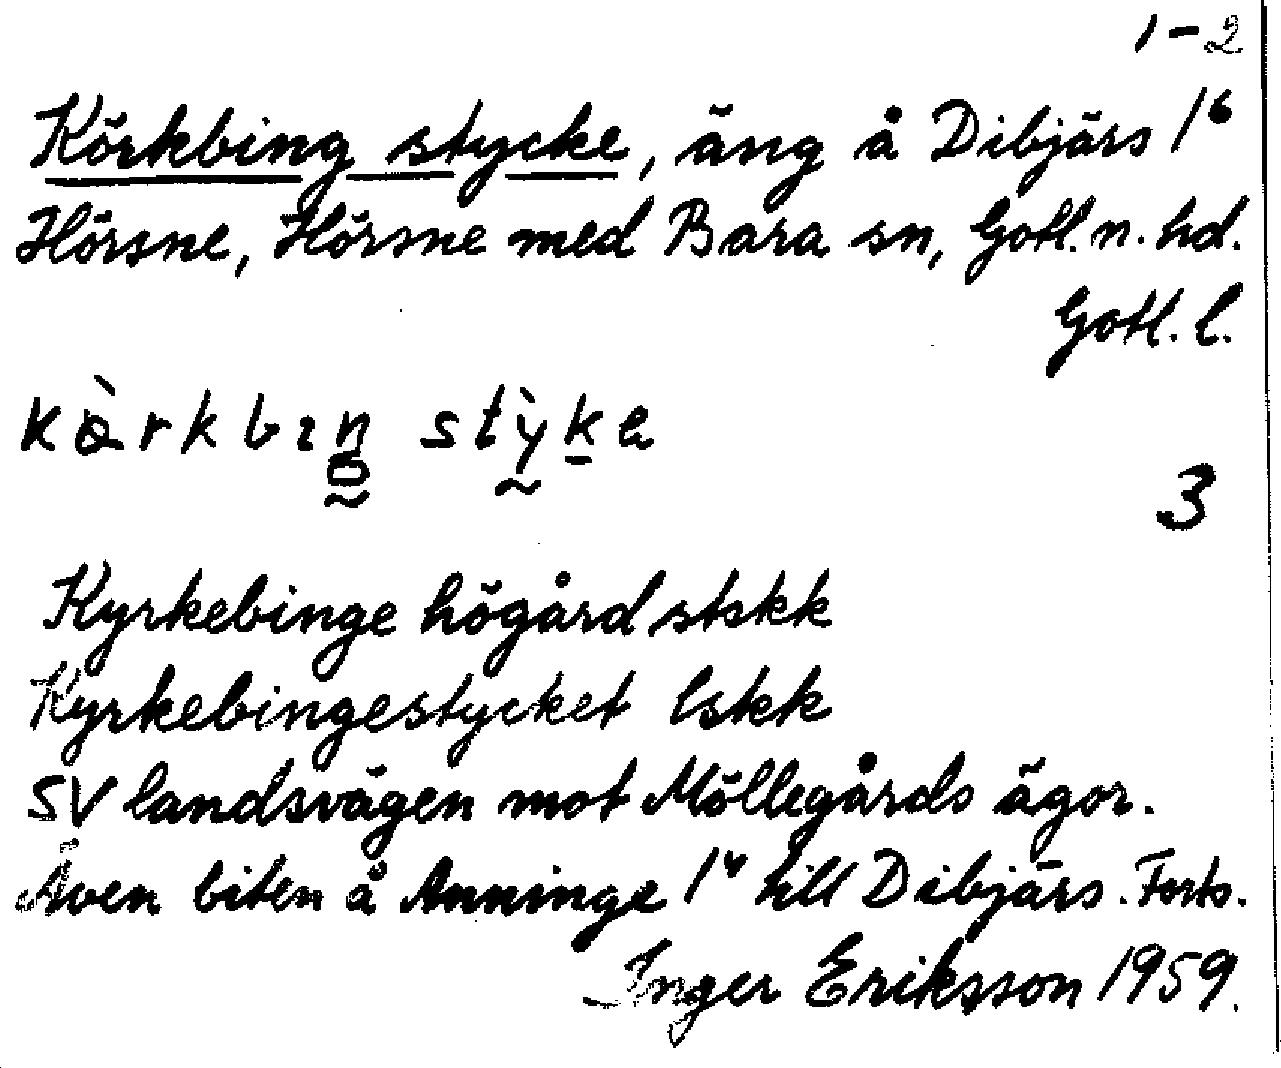 1-2
Körkbing stycke, äng å Dibjärs 1⁶
Hörsne, Hörsne med Bara sn, Gotl. n. hd.
Gotl. l.
3
Kyrkebinge högård stskk
Kyrkebingestycket lskk
SV landsvägen mot Möllegårds ägor.
Även biten å Anninge 1⁴ till Dibjärs. Forts.
Inger Eriksson 1959.